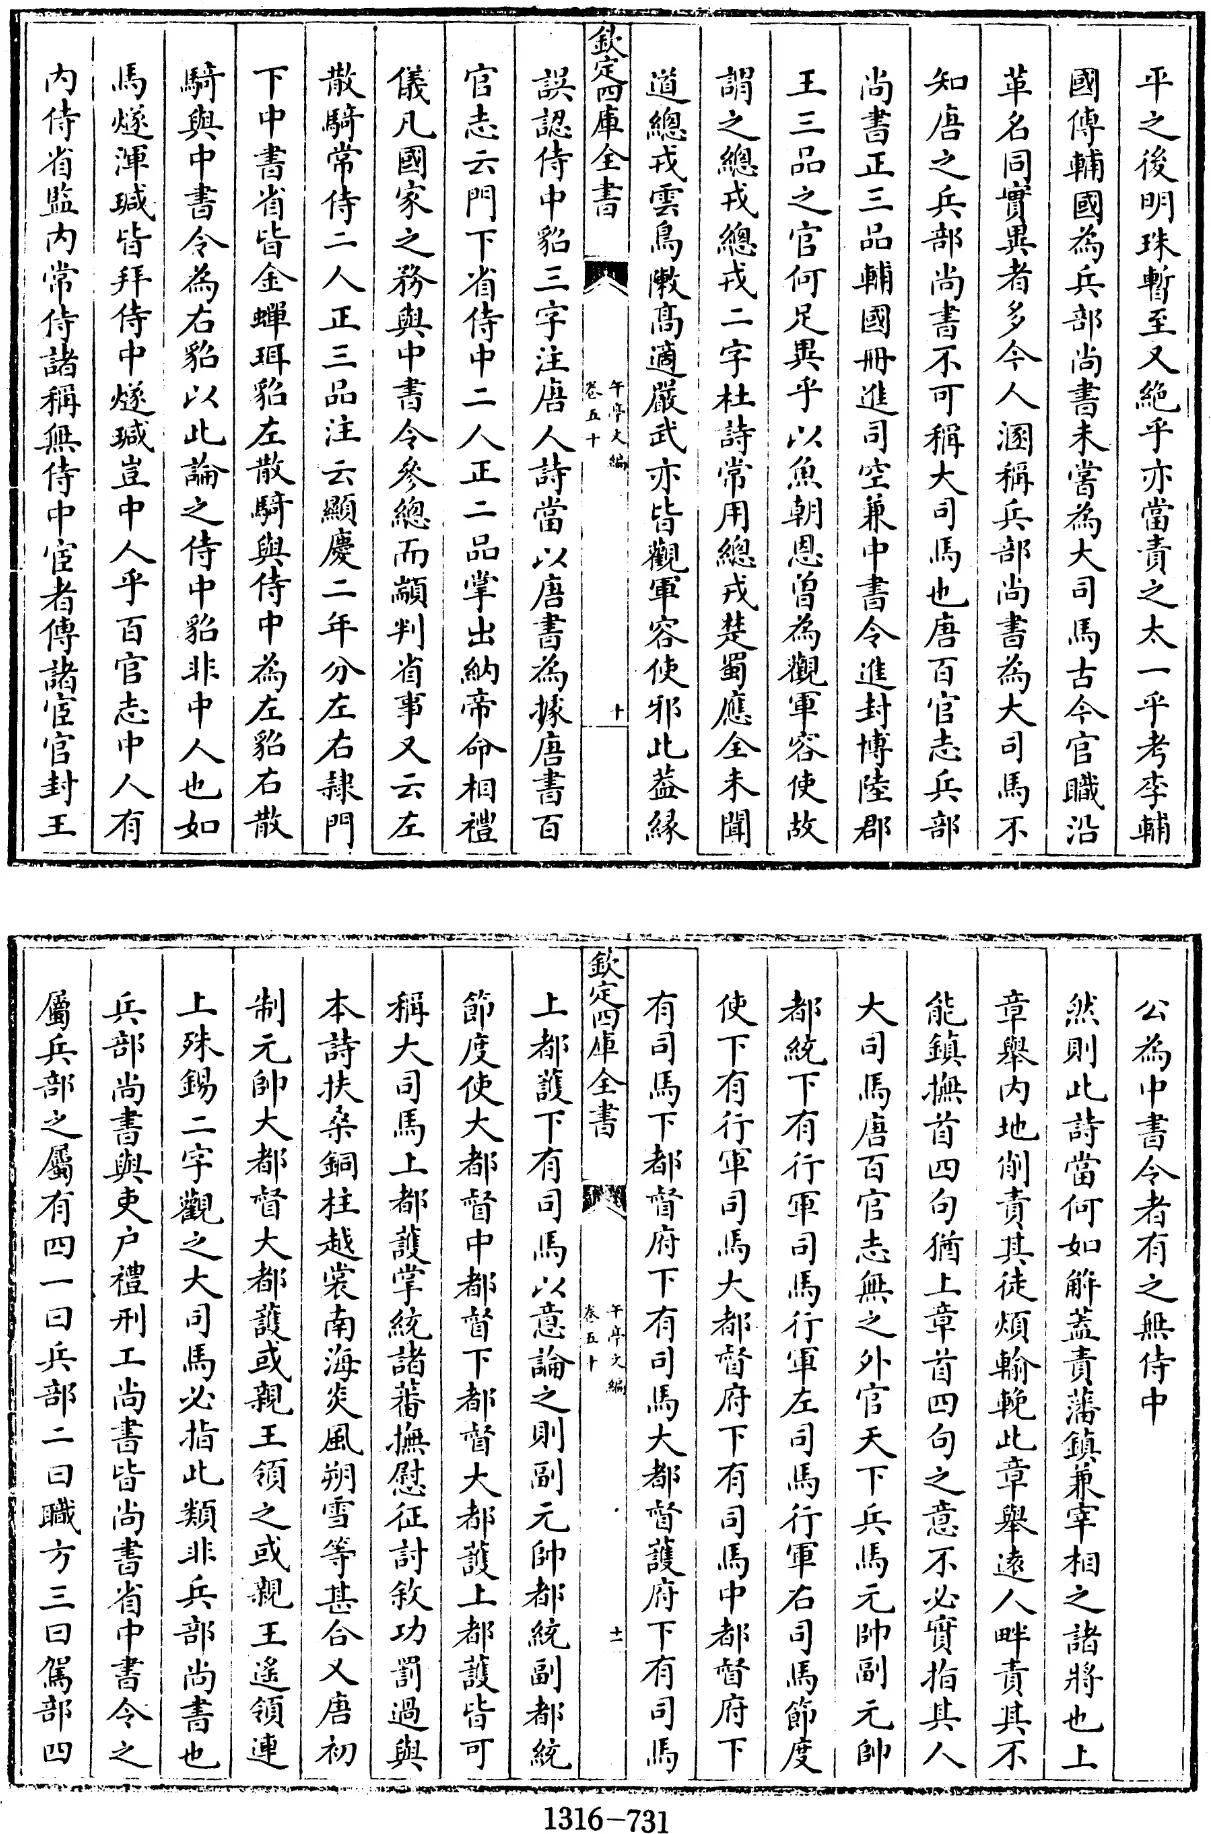 平之後明珠暫至又絶乎亦當責之太一乎考李輔
國傳輔國為兵部尚書未嘗為大司馬古今官職沿
革名同實異者多今人溷稱兵部尚書為大司馬不
知唐之兵部尚書不可稱大司馬也唐百官志兵部
尚書正三品輔國冊進司空兼中書令進封博陸郡
王三品之官何足異乎以魚朝恩曾為觀軍容使故
謂之總戎總戎二字杜詩常用總戎楚蜀應全未聞
道總戎雲鳥陣高適嚴武亦皆觀軍容使邪此葢縁
欽定四庫全書
午亭文編
卷五十
十
誤認侍中貂三字注唐人詩當以唐書為據唐書百
官志云門下省侍中二人正二品掌出納帝命相禮
儀凡國家之務與中書令參總而顓判省事又云左
散騎常侍二人正三品注云顯慶二年分左右隸門
下中書省皆金蟬珥貂左散騎與侍中為左貂右散
騎與中書令為右貂以此論之侍中貂非中人也如
馬燧渾瑊皆拜侍中燧瑊豈中人乎百官志中人有
内侍省監内常侍諸稱無侍中宦者傳諸宦官封王
公為中書令者有之無侍中
然則此詩當何如解蓋責藩鎮兼宰相之諸將也上
章舉内地削責其徒煩輸輓此章舉遠人畔責其不
能鎮撫首四句猶上章首四句之意不必實指其人
大司馬唐百官志無之外官天下兵馬元帥副元帥
都統下有行軍司馬行軍左司馬行軍右司馬節度
使下有行軍司馬大都督府下有司馬中都督府下
有司馬下都督府下有司馬大都督護府下有司馬
欽定四庫全書
午亭文編
卷五十
十一
上都護下有司馬以意論之則副元帥都統副都統
節度使大都督中都督下都督大都護上都護皆可
稱大司馬上都護掌統諸蕃撫慰征討敘功罰過與
本詩扶桑銅柱越裳南海炎風朔雪等甚合又唐初
制元帥大都督大都護或親王領之或親王遙領連
上殊錫二字觀之大司馬必指此類非兵部尚書也
兵部尚書與吏户禮刑工尚書皆尚書省中書令之
屬兵部之屬有四一曰兵部二曰職方三曰駕部四
1316-731